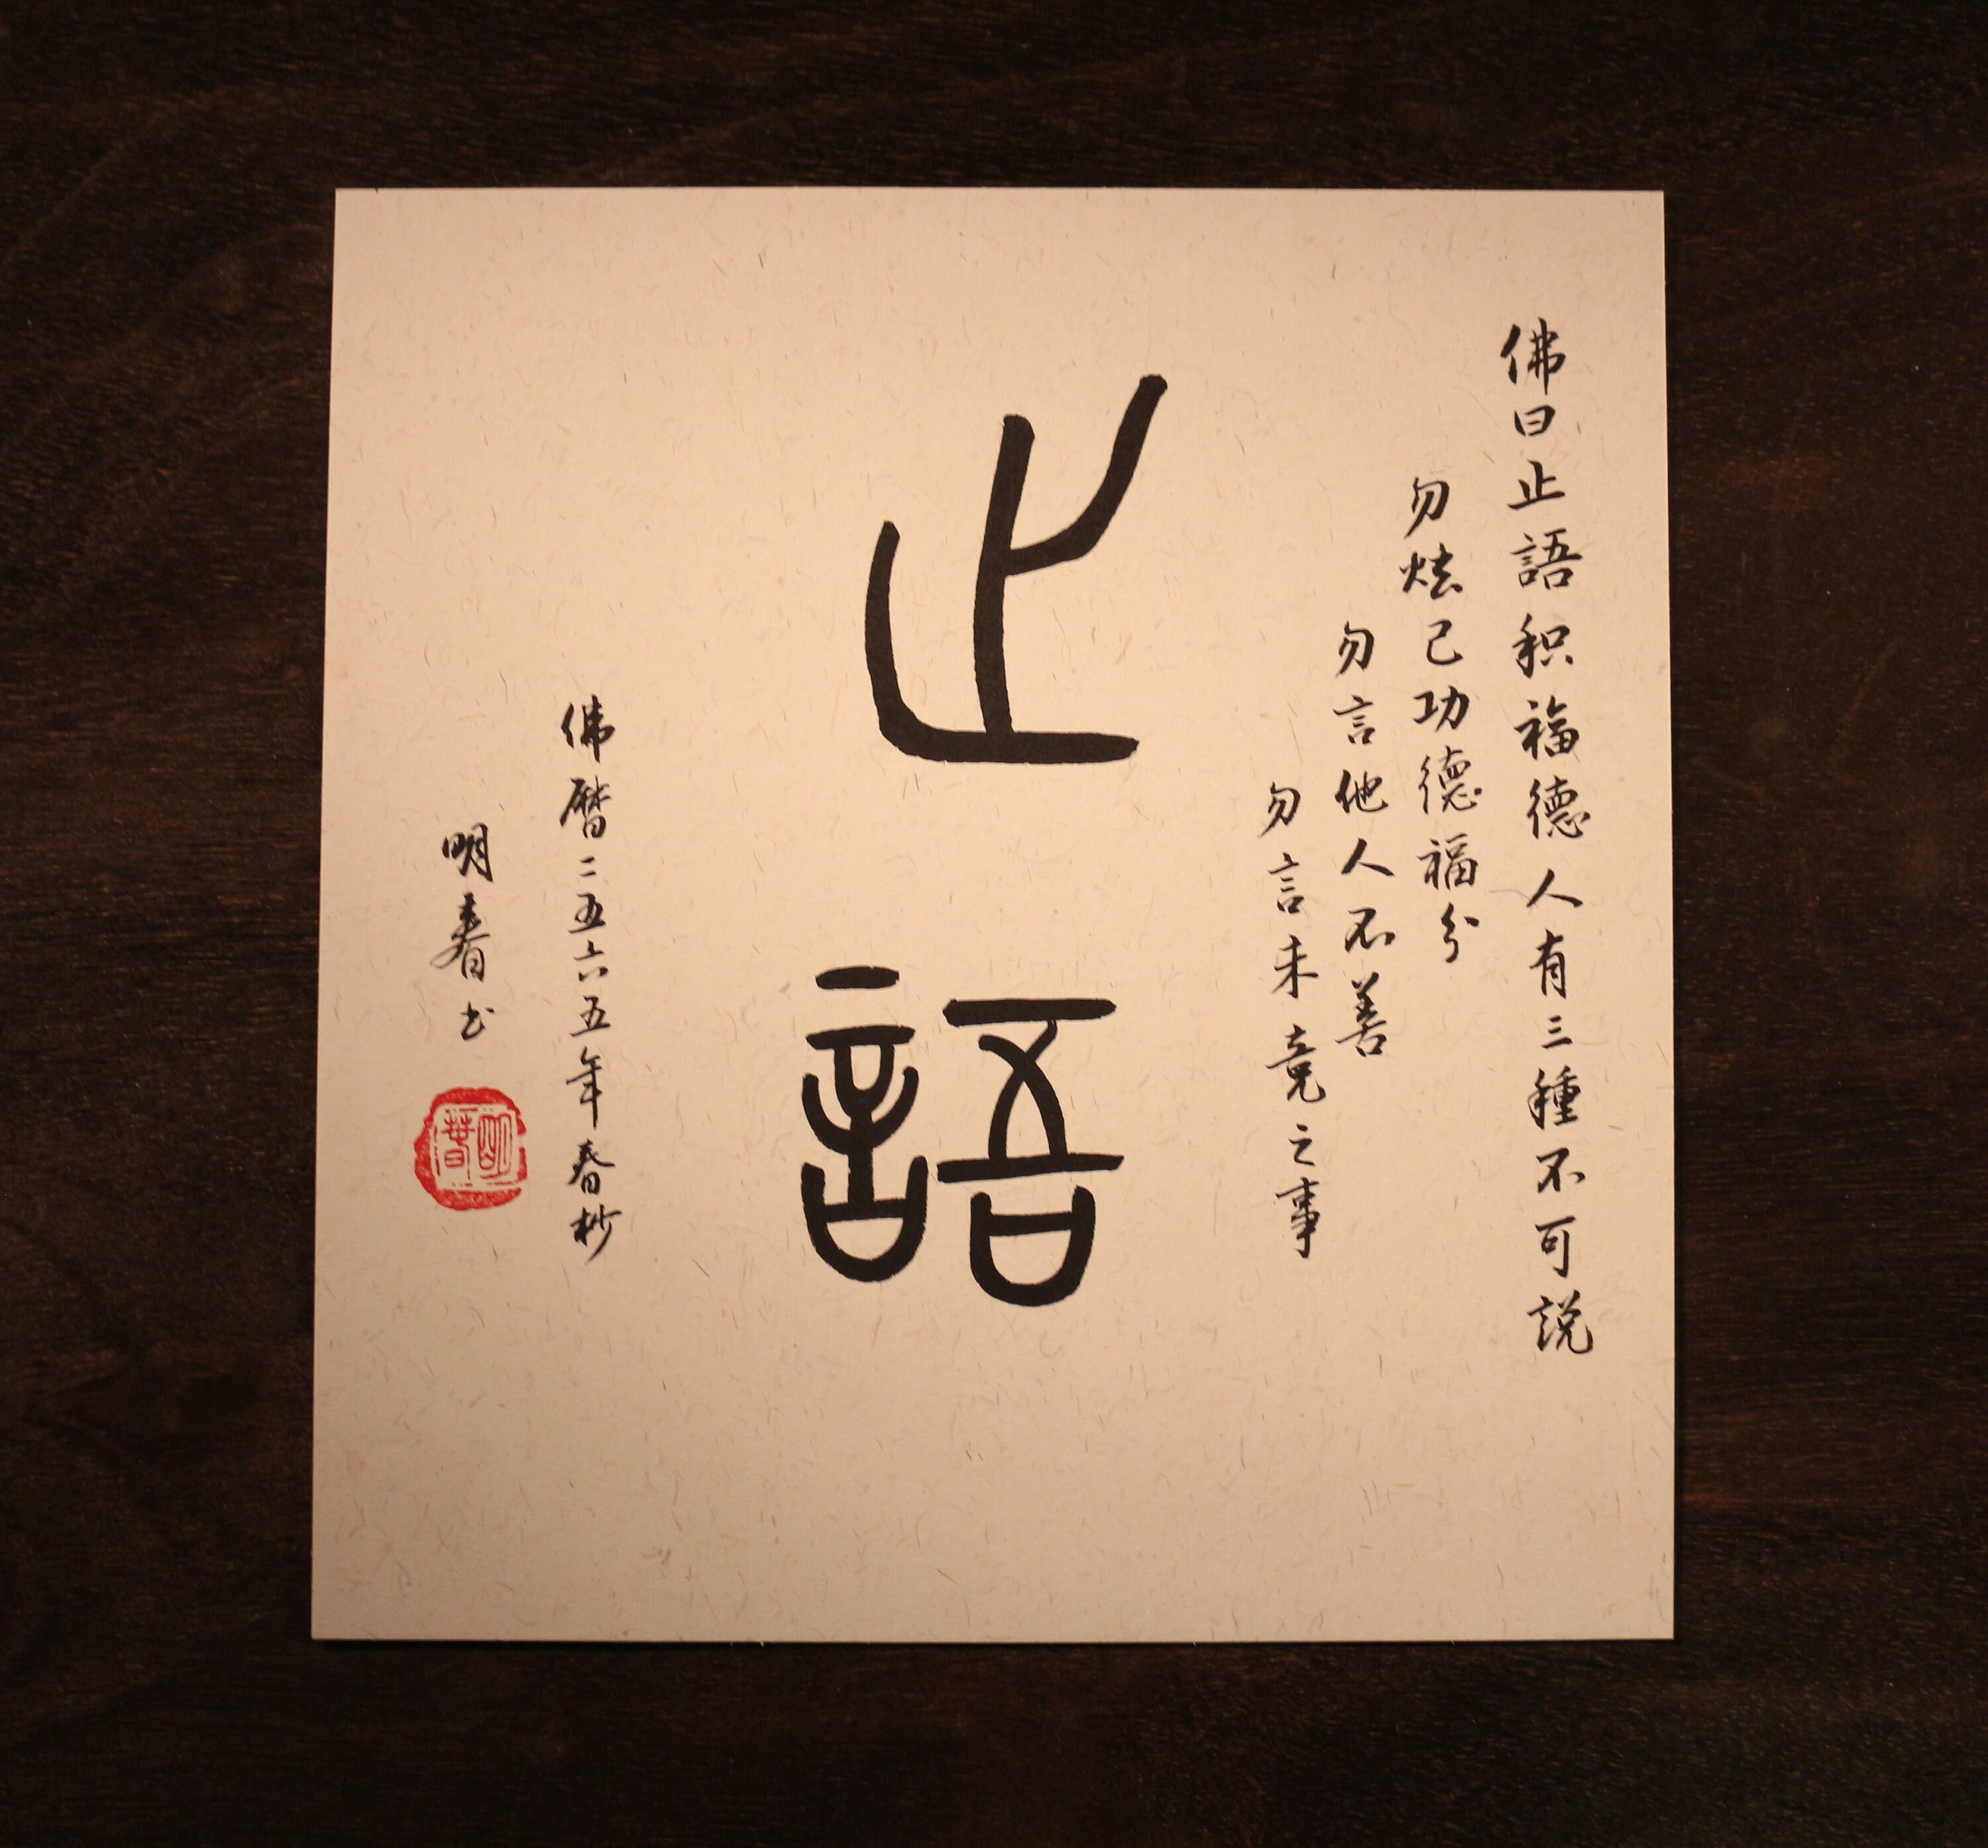 佛曰止語积福德人有三種不可説
勿炫己功德福分
勿言他人不善
勿言未竟之事
止語
佛曆二五六五年春杪
明春书
明春